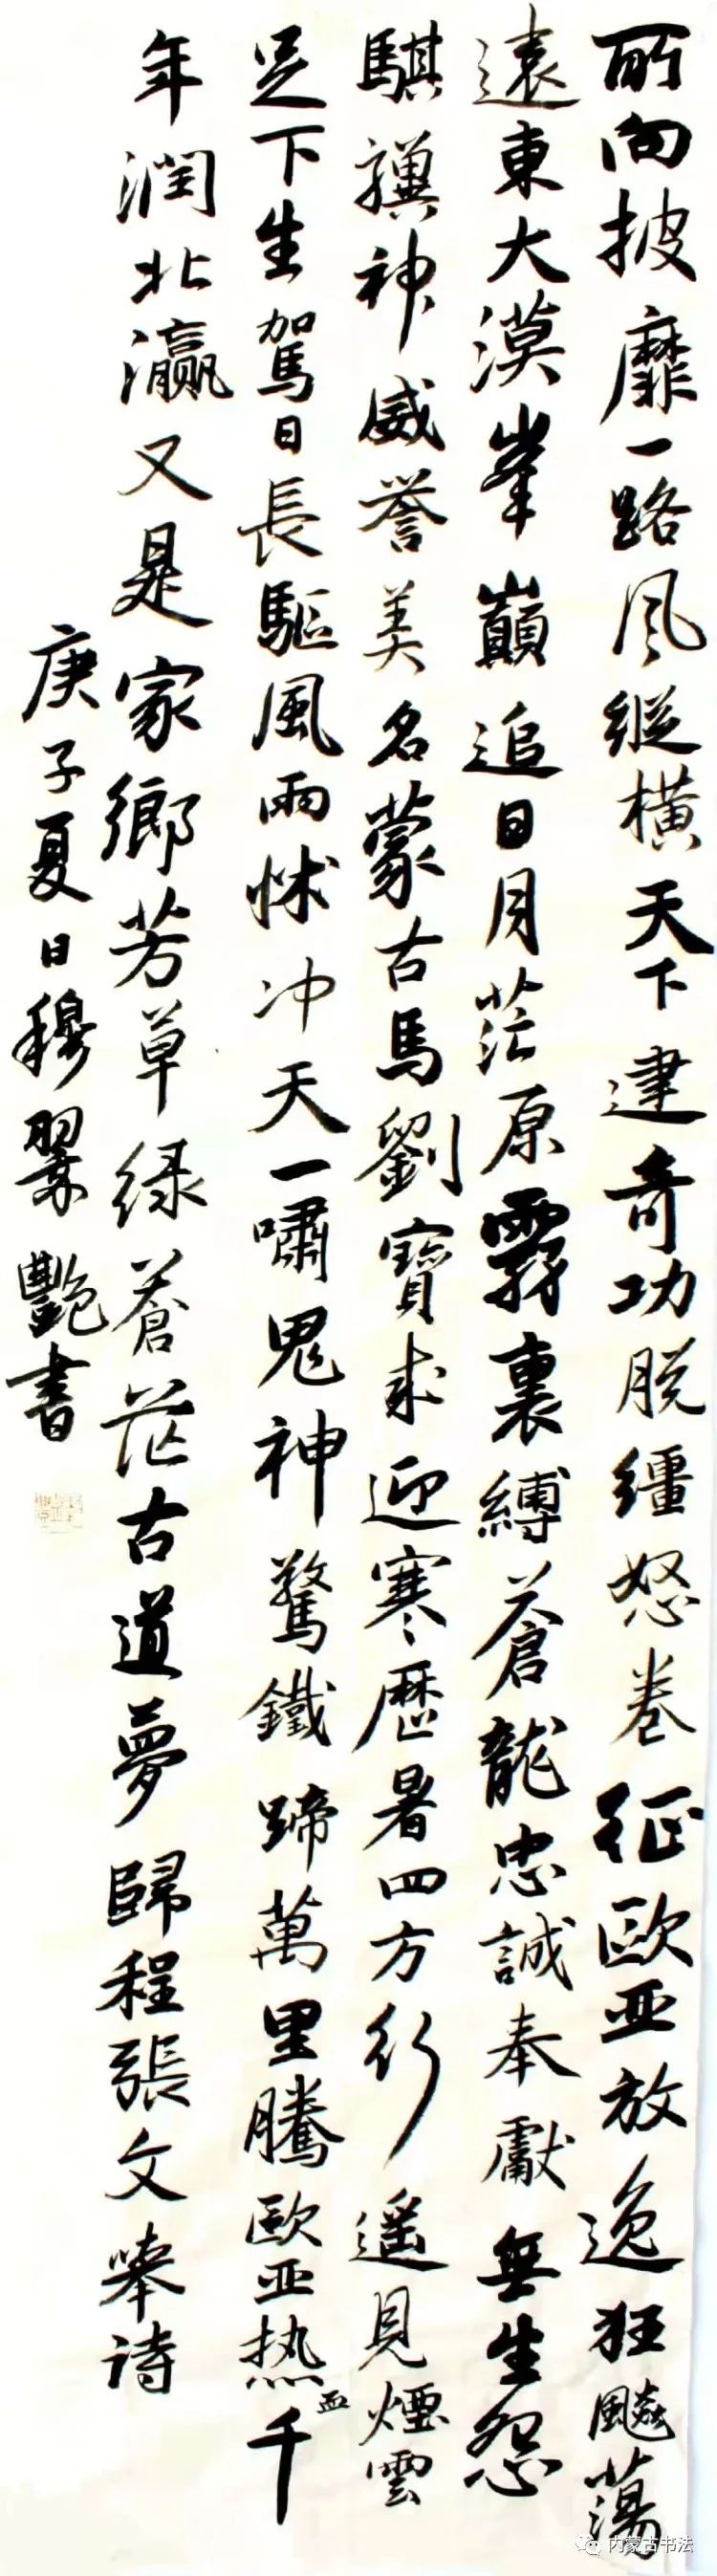 所向披靡一路风縱橫天下建奇功脱缰怒卷征歐亚放逸狂飈蕩
遠東大漠峯巔追日月茫原霧裏縛蒼龍忠誠奉獻無生怨
騏驥神威誉美名蒙古馬劉寶来迎寒歷暑四方行遥見煙雲
足下生駕日長驅風雨怵冲天一嘯鬼神驚鐵蹄萬里騰歐亚热血千
年潤北瀛又是家鄉芳草绿蒼茫古道夢歸程張文舉诗
庚子夏日穆翠艷書
内蒙古书法